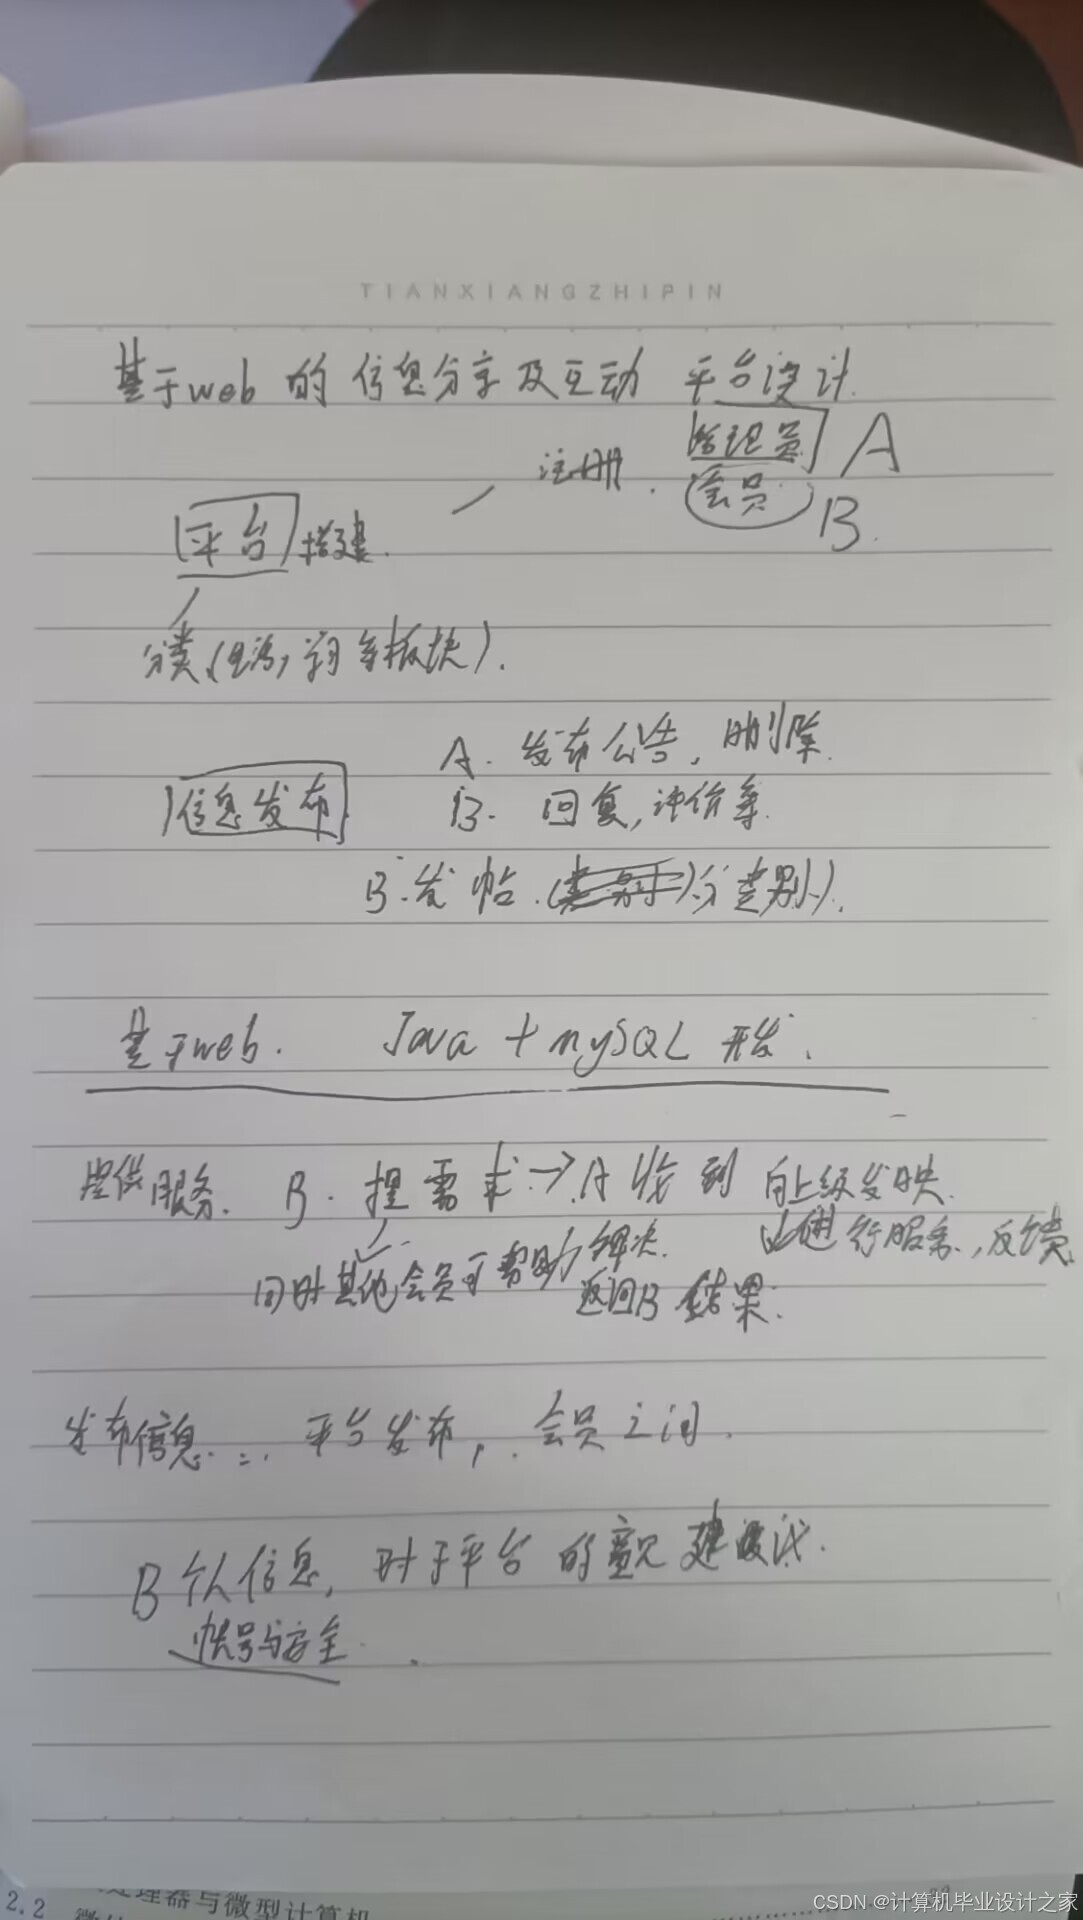 TIANXIANGZHIPIN
基于web的信息分享及互动 平台设计.
管理员 A
注册.
会员 B.
平台 搭建.
分类(生活,学习等板块).
A. 发布公告, 删除.
信息发布 B. 回复,评价等.
B.发帖.(类别)(分类别).
基于web. Java + mySQL 开发.
提供服务. B. 提需求→A收到 向上级反映.
进行服务,反馈
同时其他会员可帮助解决. 返回B 结果.
发布信息... 平台发布, 会员之间.
B个人信息, 对于平台的意见建议.
帐号与安全.
2.2 处理器与微型计算机
CSDN @计算机毕业设计之家